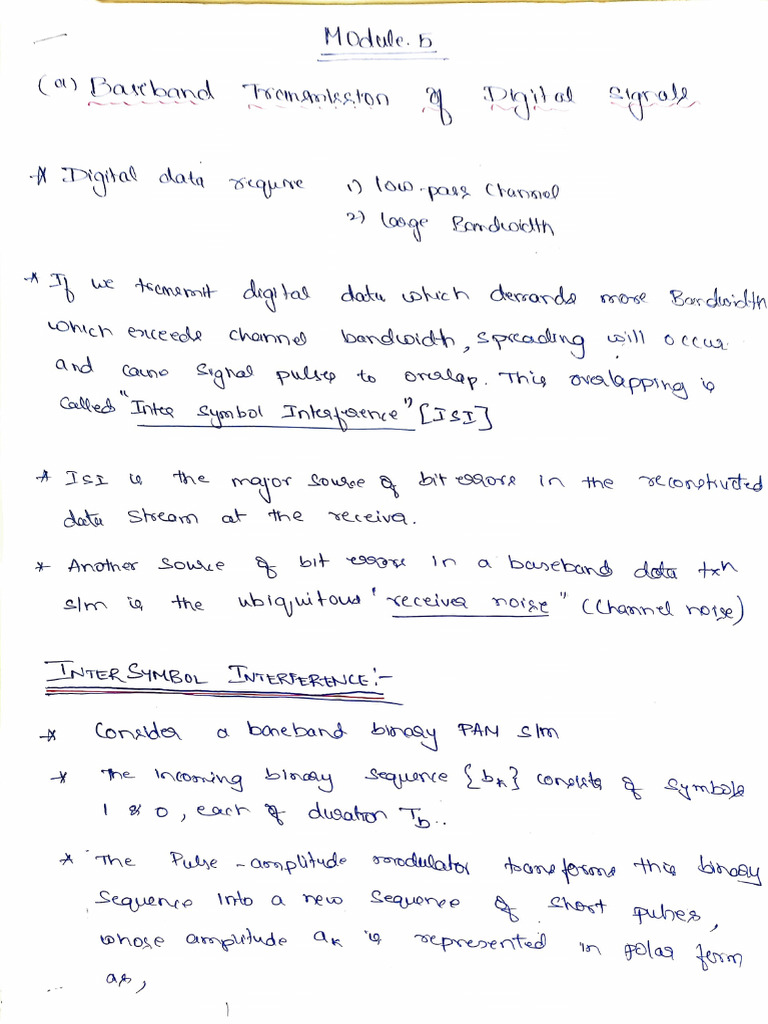 Module. 5
(a) Baseband Transmission of Digital Signals
* Digital data require 1) low-pass Channel
2) large Bandwidth
* If we transmit digital data which demands more Bandwidth
which exceeds channel bandwidth, spreading will occur
and cause signal pulses to overlap. This overlapping is
called "Inter Symbol Interference" [ISI]
* ISI is the major source of bit errors in the reconstructed
data stream at the receiver.
* Another source of bit errors in a baseband data txn
s/m is the ubiquitous "receiver noise" (Channel noise)
INTERSYMBOL INTERFERENCE:-
* Consider a baseband binary PAM s/m
* The incoming binary sequence {bk} consists of symbols
1 & 0, each of duration Tb..
* The Pulse-amplitude modulator transforms this binary
sequence into a new sequence of short pulses,
whose amplitude ak is represented in polar form
as,